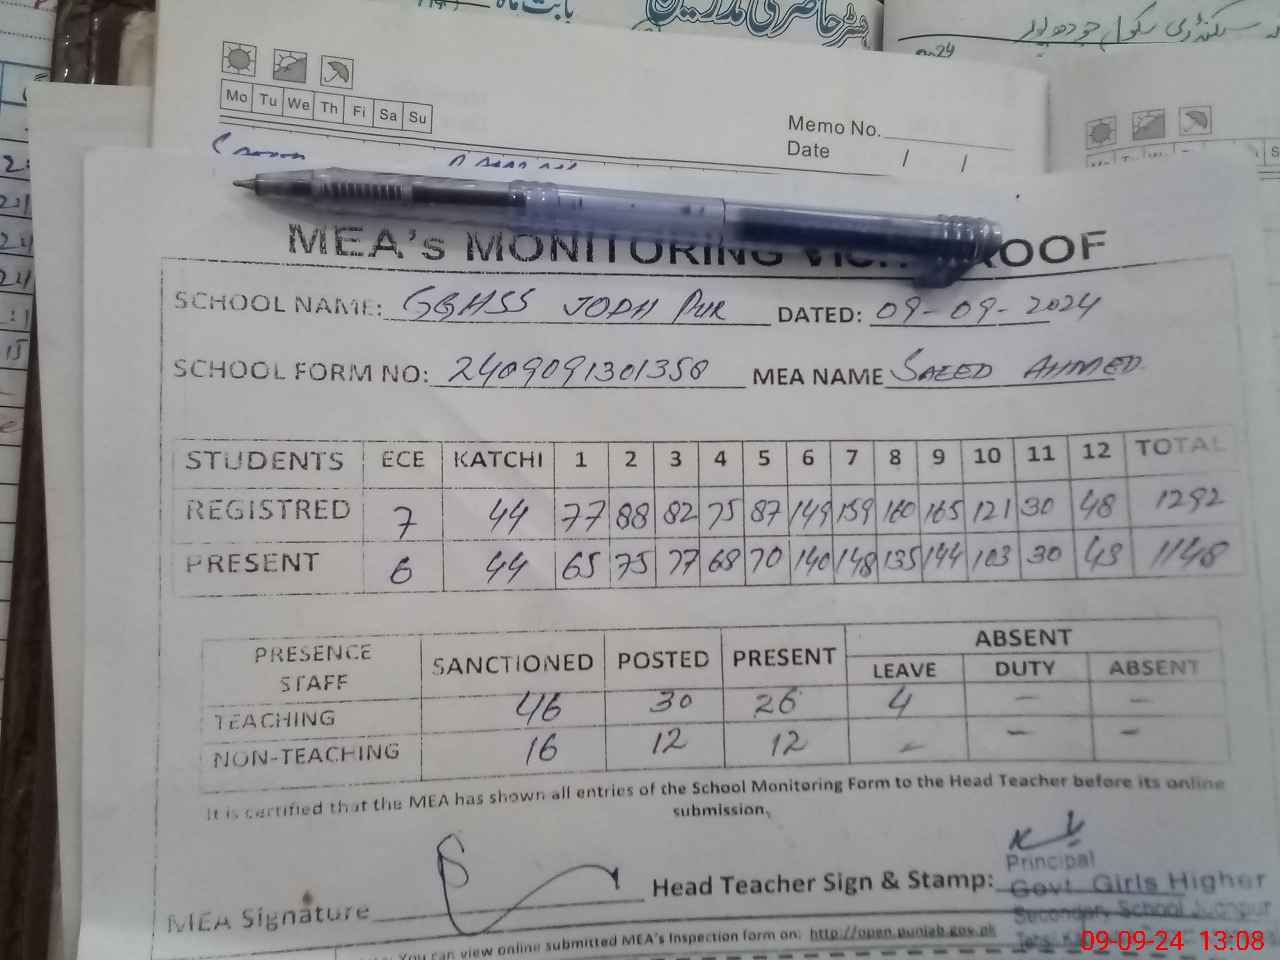 Mo Tu We Th Fi Sa Su
Memo No.
Date / /
MEA's MONITORING
SCHOOL NAME: GGHSS JODH PUR DATED: 09-09-2024
SCHOOL FORM NO: 2409091301358 MEA NAME SAEED AHMED
STUDENTS ECE KATCHI 1 2 3 4 5 6 7 8 9 10 11 12 TOTAL
REGISTRED 7 44 77 88 82 75 87 149 159 160 165 121 30 48 1292
PRESENT 6 44 65 75 77 68 70 140 148 135 144 103 30 43 1148
PRESENCE STAFF SANCTIONED POSTED PRESENT ABSENT
LEAVE DUTY ABSENT
TEACHING 46 30 26 4 - -
NON-TEACHING 16 12 12 - - -
It is certified that the MEA has shown all entries of the School Monitoring Form to the Head Teacher before its online
submission.
MEA Signature Head Teacher Sign & Stamp:
Principal
Govt Girls Higher
Secondary School
You can view online submitted MEA's Inspection form on: http://open.punjab.gov.pk
09-09-24 13:08